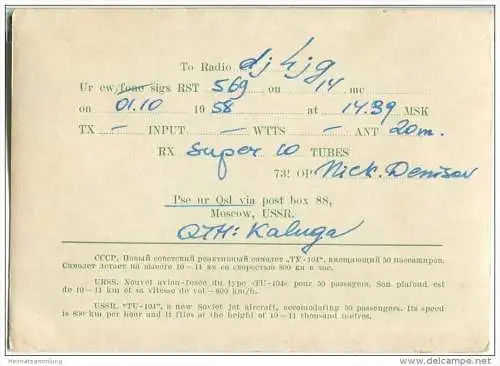 To Radio dj4jg
Ur cw/fone sigs RST 569 on 14 mc
on 01.10 1958 at 14.39 MSK
TX — INPUT — WTTS — ANT 20m.
RX Super 10 TUBES
73! OP Nick. Denisov
Pse ur Qsl via post box 88,
Moscow, USSR.
QTH: Kaluga
СССР. Новый советский реактивный самолет „ТУ-104", вмещающий 50 пассажиров.
Самолет летает на высоте 10—11 км со скоростью 800 км в час.
URSS. Nouvel avion-fusée du type «TU-104» pour 50 passagers. Son plafond est
de 10—11 km et sa vitesse de vol—800 km/h.
USSR. "TU-104", a new Soviet jet aircraft, accomodating 50 passengers. Its speed
is 800 km per hour and it flies at the height of 10—11 thousand metres.
Heimatsammlung
delcampe.net